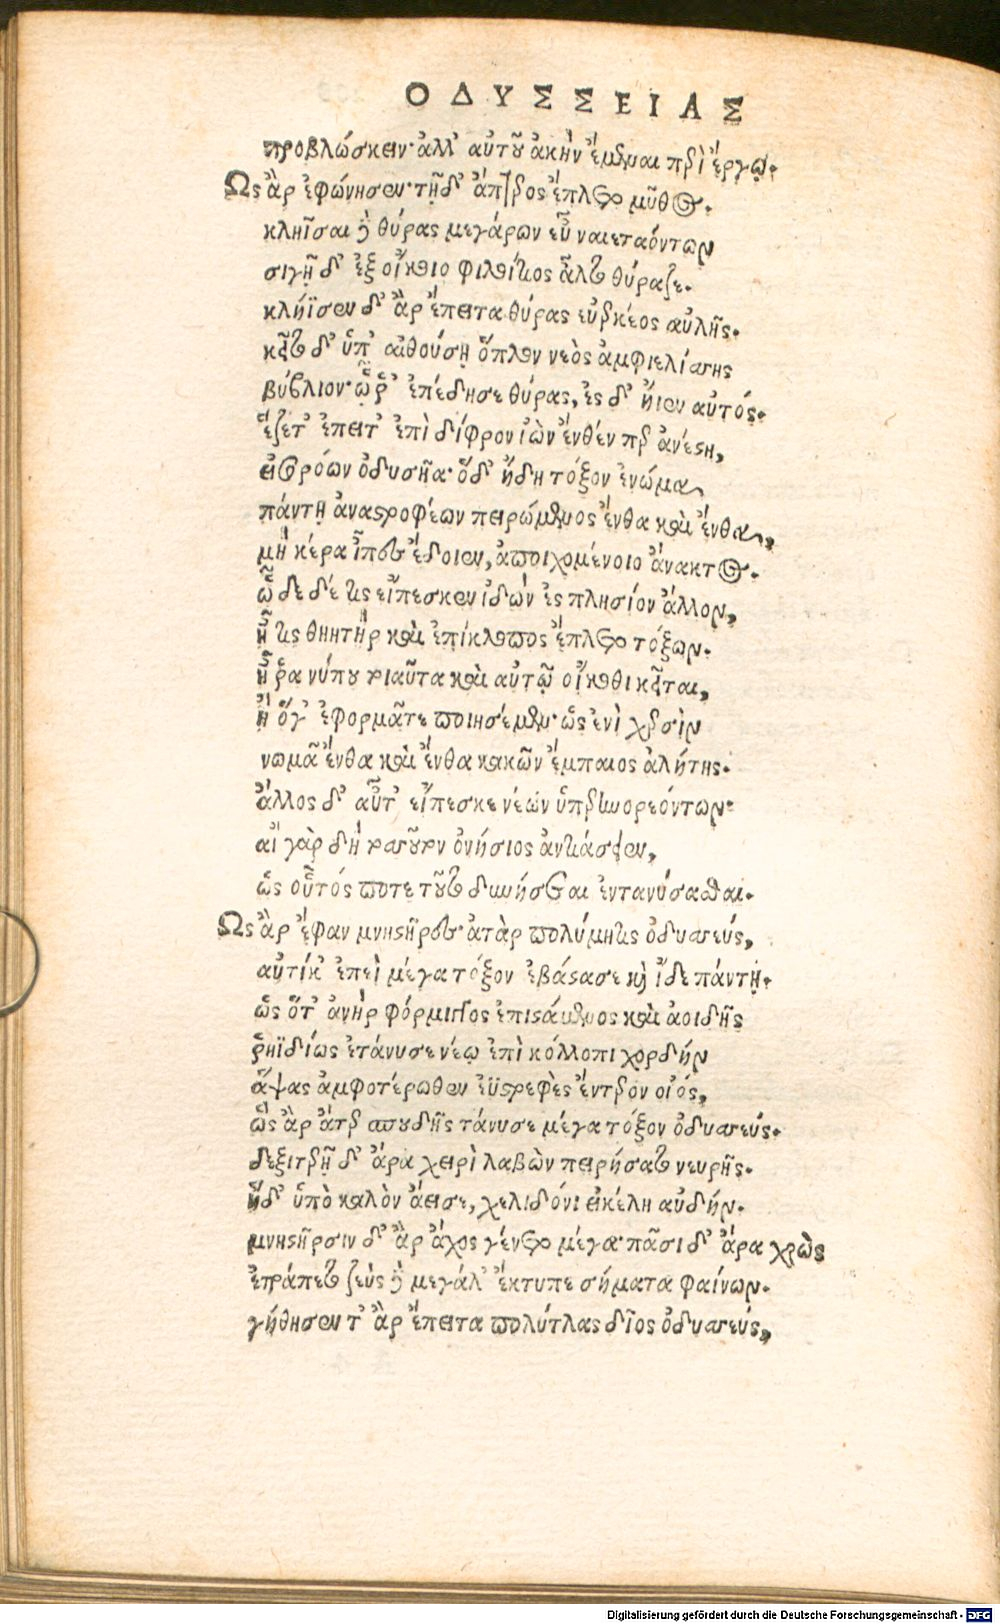 ΟΔΥΣΣΕΙΑΣ
προβλώσκειν· ἀλλ' αὐτοῦ ἀκὴν ἔμεναι παρὰ ἔργῳ.
Ὣς ἂρ ἐφώνησεν· τῇ δ' ἄπτερος ἔπλετο μῦθος.
κλήϊσαι δὲ θύρας μεγάρων εὖ ναιεταόντων
σιγῇ δ' ἐξ οἴκοιο φιλοίτιος ἆλτο θύραζε.
κλήϊσεν δ' ἂρ ἔπειτα θύρας εὐερκέος αὐλῆς.
κεῖτο δ' ὑπ' αἰθούσῃ ὅπλον νεὸς ἀμφιελίσσης
βύβλιον· ᾧ ῥ' ἐπέδησε θύρας, ἐς δ' ἤϊεν αὐτός.
ἕζετ' ἔπειτ' ἐπὶ δίφρον ἰὼν ἔνθέν περ ἀνέστη,
εἰσορόων ὀδυσῆα· ὅδ' ἤδη τόξον ἐνώμα
πάντῃ ἀναστροφέων πειρώμενος ἔνθα καὶ ἔνθα,
μὴ κέρα ἶπες ἔδοιεν, ἀποιχομένοιο ἄνακτος.
ὧδε δέ τις εἴπεσκεν ἰδὼν ἐς πλησίον ἄλλον,
ἦ τις θηητὴρ καὶ ἐπίκλοπος ἔπλετο τόξων.
ἤ ῥα νύ που τοιαῦτα καὶ αὐτῷ οἴκοθι κεῖται,
ἢ ὅγ' ἐφορμᾶτε ποιησέμεν· ὡς ἐνὶ χερσὶν
νωμᾷ ἔνθα καὶ ἔνθα κακῶν ἔμπαιος ἀλήτης.
ἄλλος δ' αὖτ' εἴπεσκε νέων ὑπερηνορεόντων·
αἲ γὰρ δὴ τοσσοῦτον ὀνήσιος ἀντιάσειεν,
ὡς οὗτός ποτε τοῦτο δυνήσεται ἐντανύσασθαι.
Ὣς ἂρ ἔφαν μνηστῆρες· ἀτὰρ πολύμητις ὀδυσσεύς,
αὐτίκ' ἐπεὶ μέγα τόξον ἐβάστασε καὶ ἴδε πάντῃ.
ὡς ὅτ' ἀνὴρ φόρμιγγος ἐπιστάμενος καὶ ἀοιδῆς
ῥηϊδίως ἐτάνυσε νέῳ ἐπὶ κόλλοπι χορδὴν
ἅψας ἀμφοτέρωθεν ἐϋστρεφὲς ἔντερον οἰός,
ὣς ἂρ ἄτερ σπουδῆς τάνυσε μέγα τόξον ὀδυσσεύς.
δεξιτερῇ δ' ἄρα χειρὶ λαβὼν πειρήσατο νευρῆς.
ἥδ' ὑπὸ καλὸν ἄεισε, χελιδόνι εἰκέλη αὐδήν.
μνηστῆρσιν δ' ἂρ ἄχος γένετο μέγα· πᾶσι δ' ἄρα χρὼς
ἐτράπετο ζεὺς δὲ μεγάλ' ἔκτυπε σήματα φαίνων.
γήθησεν τ' ἂρ ἔπειτα πολύτλας δῖος ὀδυσσεύς,
Digitalisierung gefördert durch die Deutsche Forschungsgemeinschaft - DFG